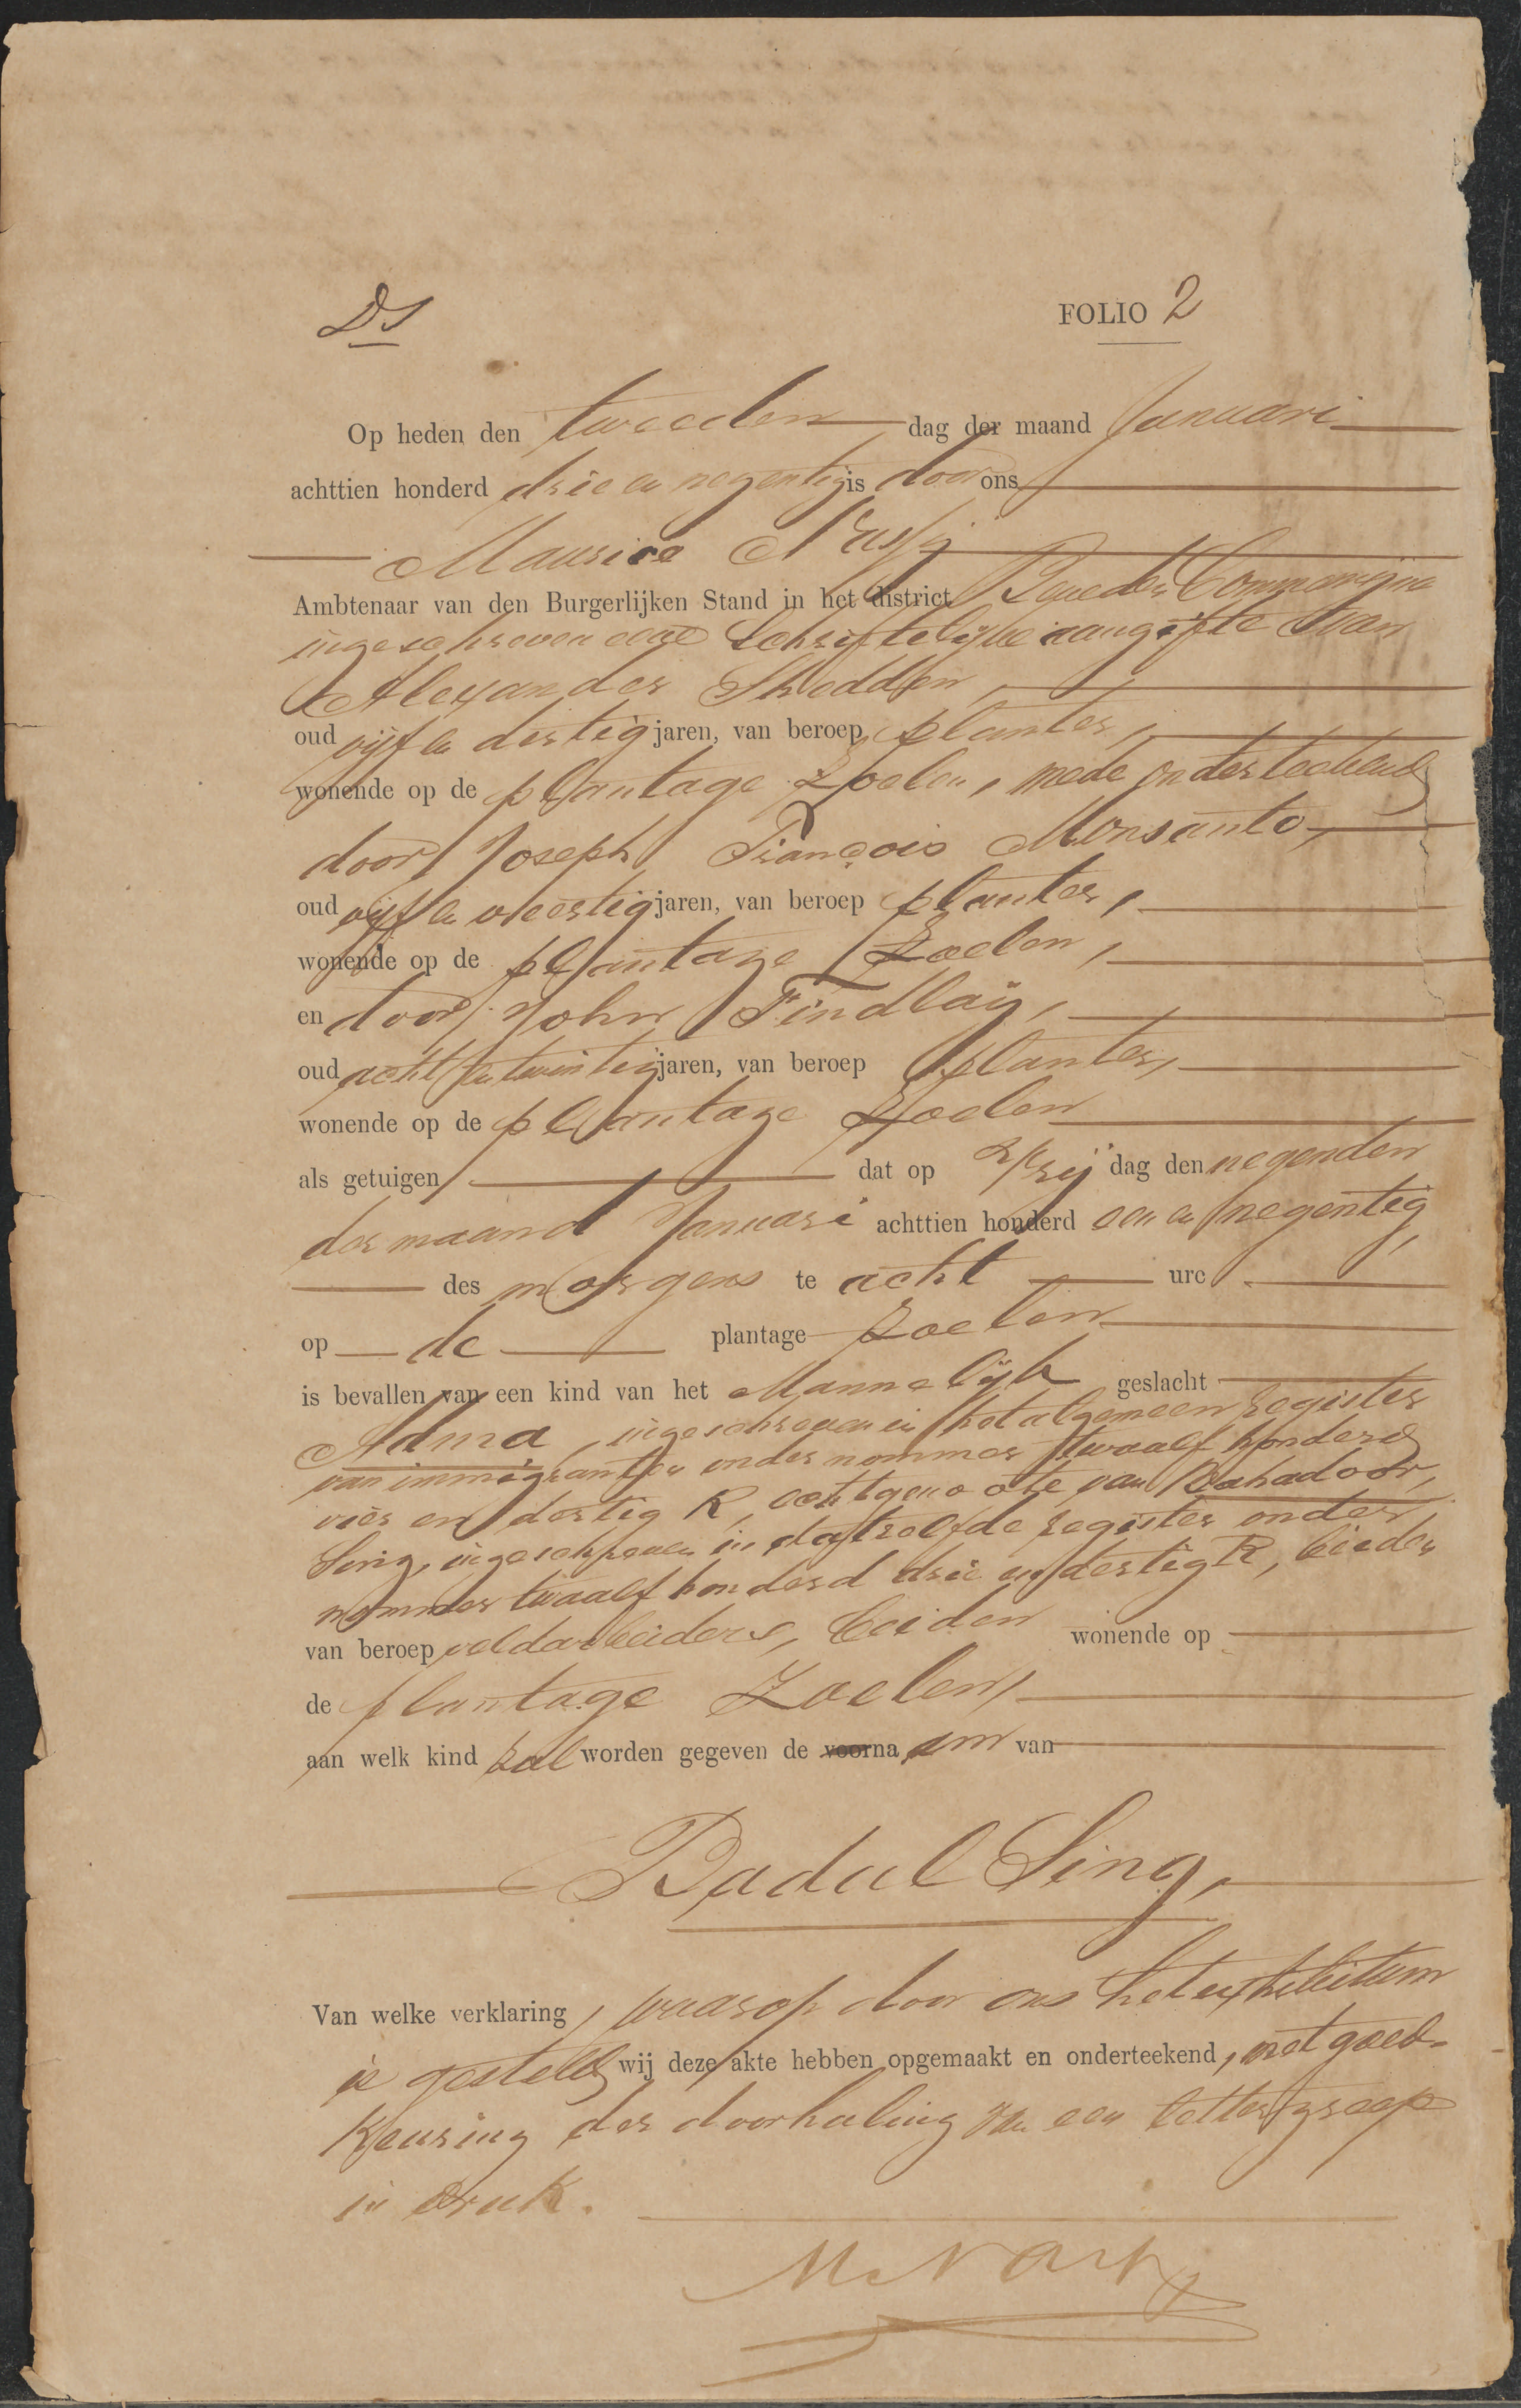 DS
FOLIO 2
Op heden den tweeden dag der maand Januari
achttien honderd drie en negentig is door ons
Maurice
Ambtenaar van den Burgerlijken Stand in het district Beneden Commewijne
ingeschreven eene Schriftelijke aangifte van
Alexander Shedden,
oud vijf en dertig jaren, van beroep planter,
wonende op de plantage Zoelen, mede onderteekend
door Joseph François Monsanto,
oud vijf en veertig jaren, van beroep planter,
wonende op de plantage Zoelen,
en door John Findlay,
oud acht en twintig jaren, van beroep planter,
wonende op de plantage Zoelen
als getuigen dat op Vrij dag den negenden
der maand Januari achttien honderd een en negentig,
des morgens te acht ure
op de plantage Zoelen
is bevallen van een kind van het Mannelijk geslacht
ingeschreven in het algemeen register
van immigranten onder nommer twaalf honderd
vier en dertig R, echtgenoote van Bahadoor,
Sing, ingeschreven in datzelfde register onder
nommer twaalf honderd drie en dertig R, beiden
van beroep veldarbeiders, beiden wonende op
de plantage Zoelen,
aan welk kind zal worden gegeven de voorna am van
Badul Sing,
Van welke verklaring, waarop door ons het exhibitum
is gesteld, wij deze akte hebben opgemaakt en onderteekend, met goed-
keuring der doorhaling van een lettergreep
in druk.